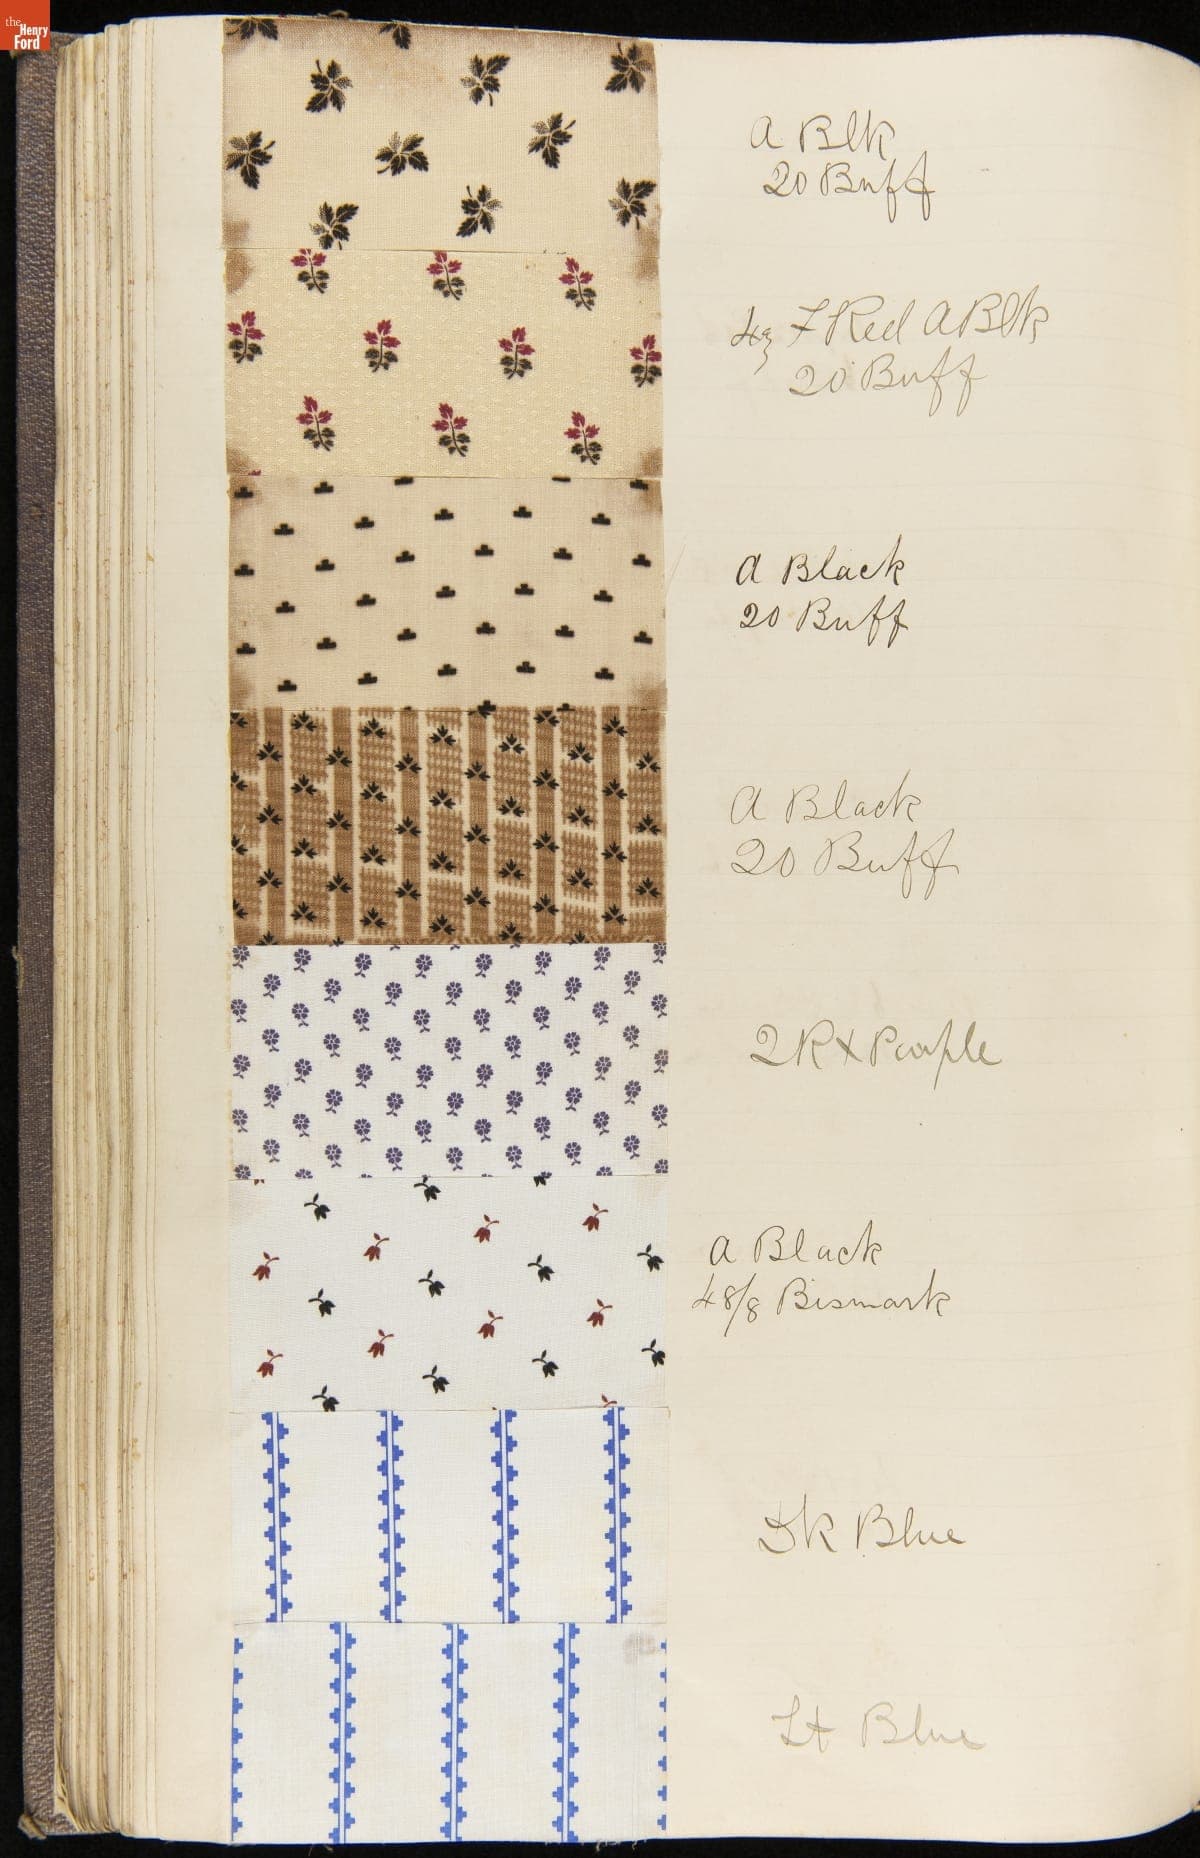 the
Henry
Ford
A Blk
20 Buff
Red A Blk
20 Buff
A Black
20 Buff
A Black
20 Buff
2 R x Purple
A Black
48/8 Bismark
Dk Blue
Lt Blue